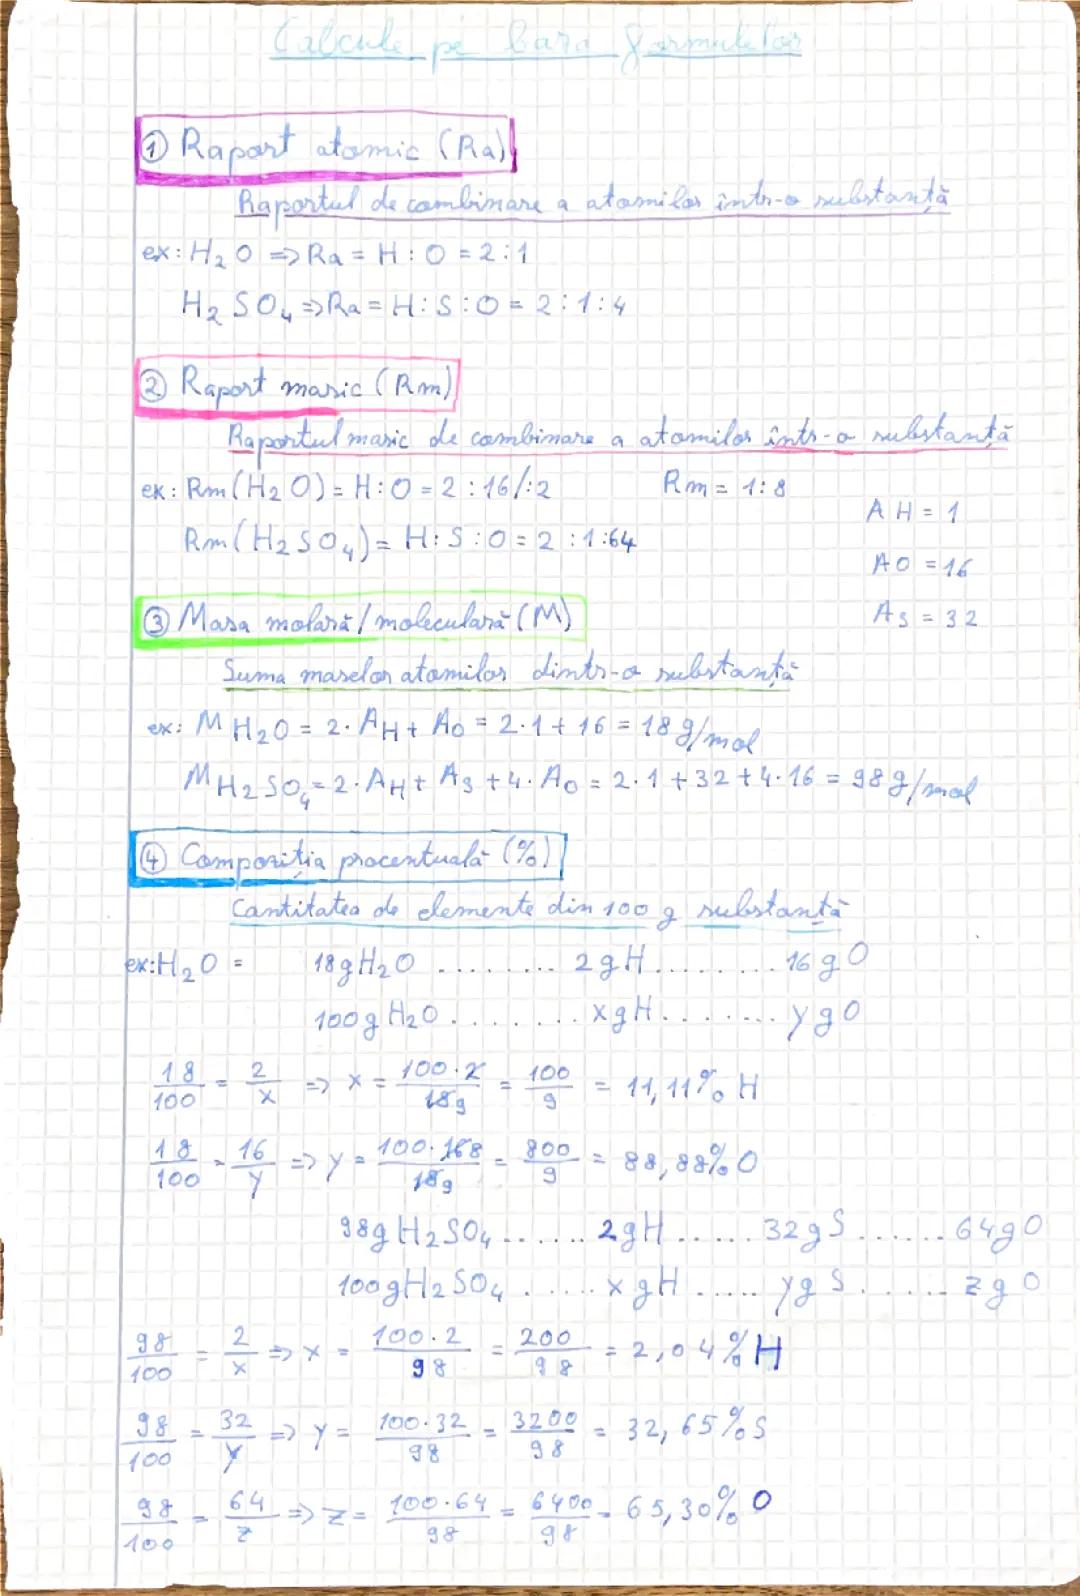 Calcule pe baza formulelor
① Raport atomic (Ra)
Raportul de combinare a atomilor într-o substanță
ex: H₂O => Ra = H : O = 2 : 1
H₂SO₄ => Ra = H : S : O = 2 : 1 : 4
② Raport masic (Rm)
Raportul masic de combinare a atomilor într-o substanță
ex: Rm(H₂O) = H : O = 2 : 16/:2 Rm = 1 : 8
AH = 1
Rm(H₂SO₄) = H : S : O = 2 : 1 : 64
AO = 16
③ Masa molară/moleculară (M)
AS = 32
Suma maselor atomilor dintr-o substanță
ex: M H₂O = 2 · AH + AO = 2 · 1 + 16 = 18 g/mol
M H₂SO₄ = 2 · AH + AS + 4 · AO = 2 · 1 + 32 + 4 · 16 = 98 g/mol
④ Compoziția procentuală (%)
Cantitatea de elemente din 100 g substanță
ex: H₂O = 18g H₂O ........ 2 g H ........ 16 g O
100g H₂O ........ x g H ........ y g O
18/100 = 2/x => x = 100·2/18 9 = 100/9 = 11,11% H
18/100 = 16/y => y = 100·16 8/18 9 = 800/9 = 88,88% O
98g H₂SO₄ ...... 2 g H ..... 32 g S ...... 64 g O
100g H₂SO₄ ...... x g H ..... y g S ...... z g O
98/100 = 2/x => x = 100·2/98 = 200/98 = 2,04% H
98/100 = 32/y => y = 100·32/98 = 3200/98 = 32,65% S
98/100 = 64/z => z = 100·64/98 = 6400/98 = 65,30% O